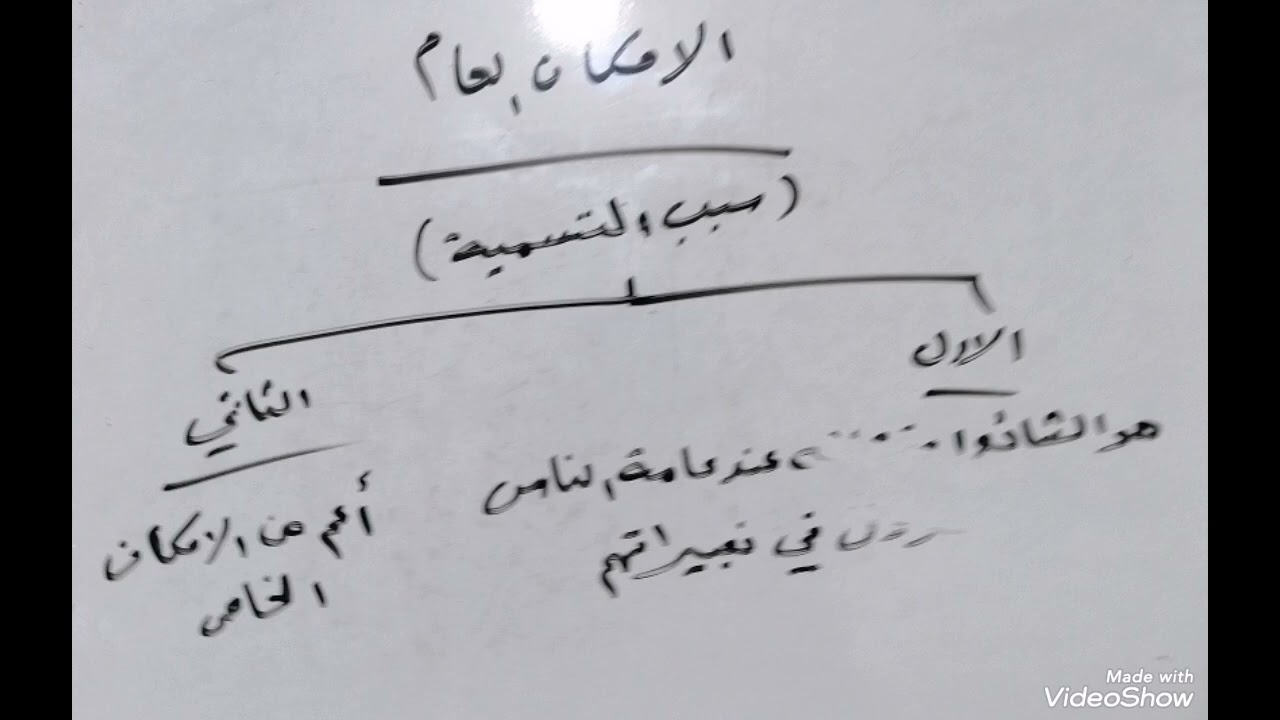 الامكان العام
(سبب التسمية)
الاول
هو الشائع عند عامة الناس
في تعبيراتهم
الثاني
أعم من الامكان
الخاص
Made with
VideoShow